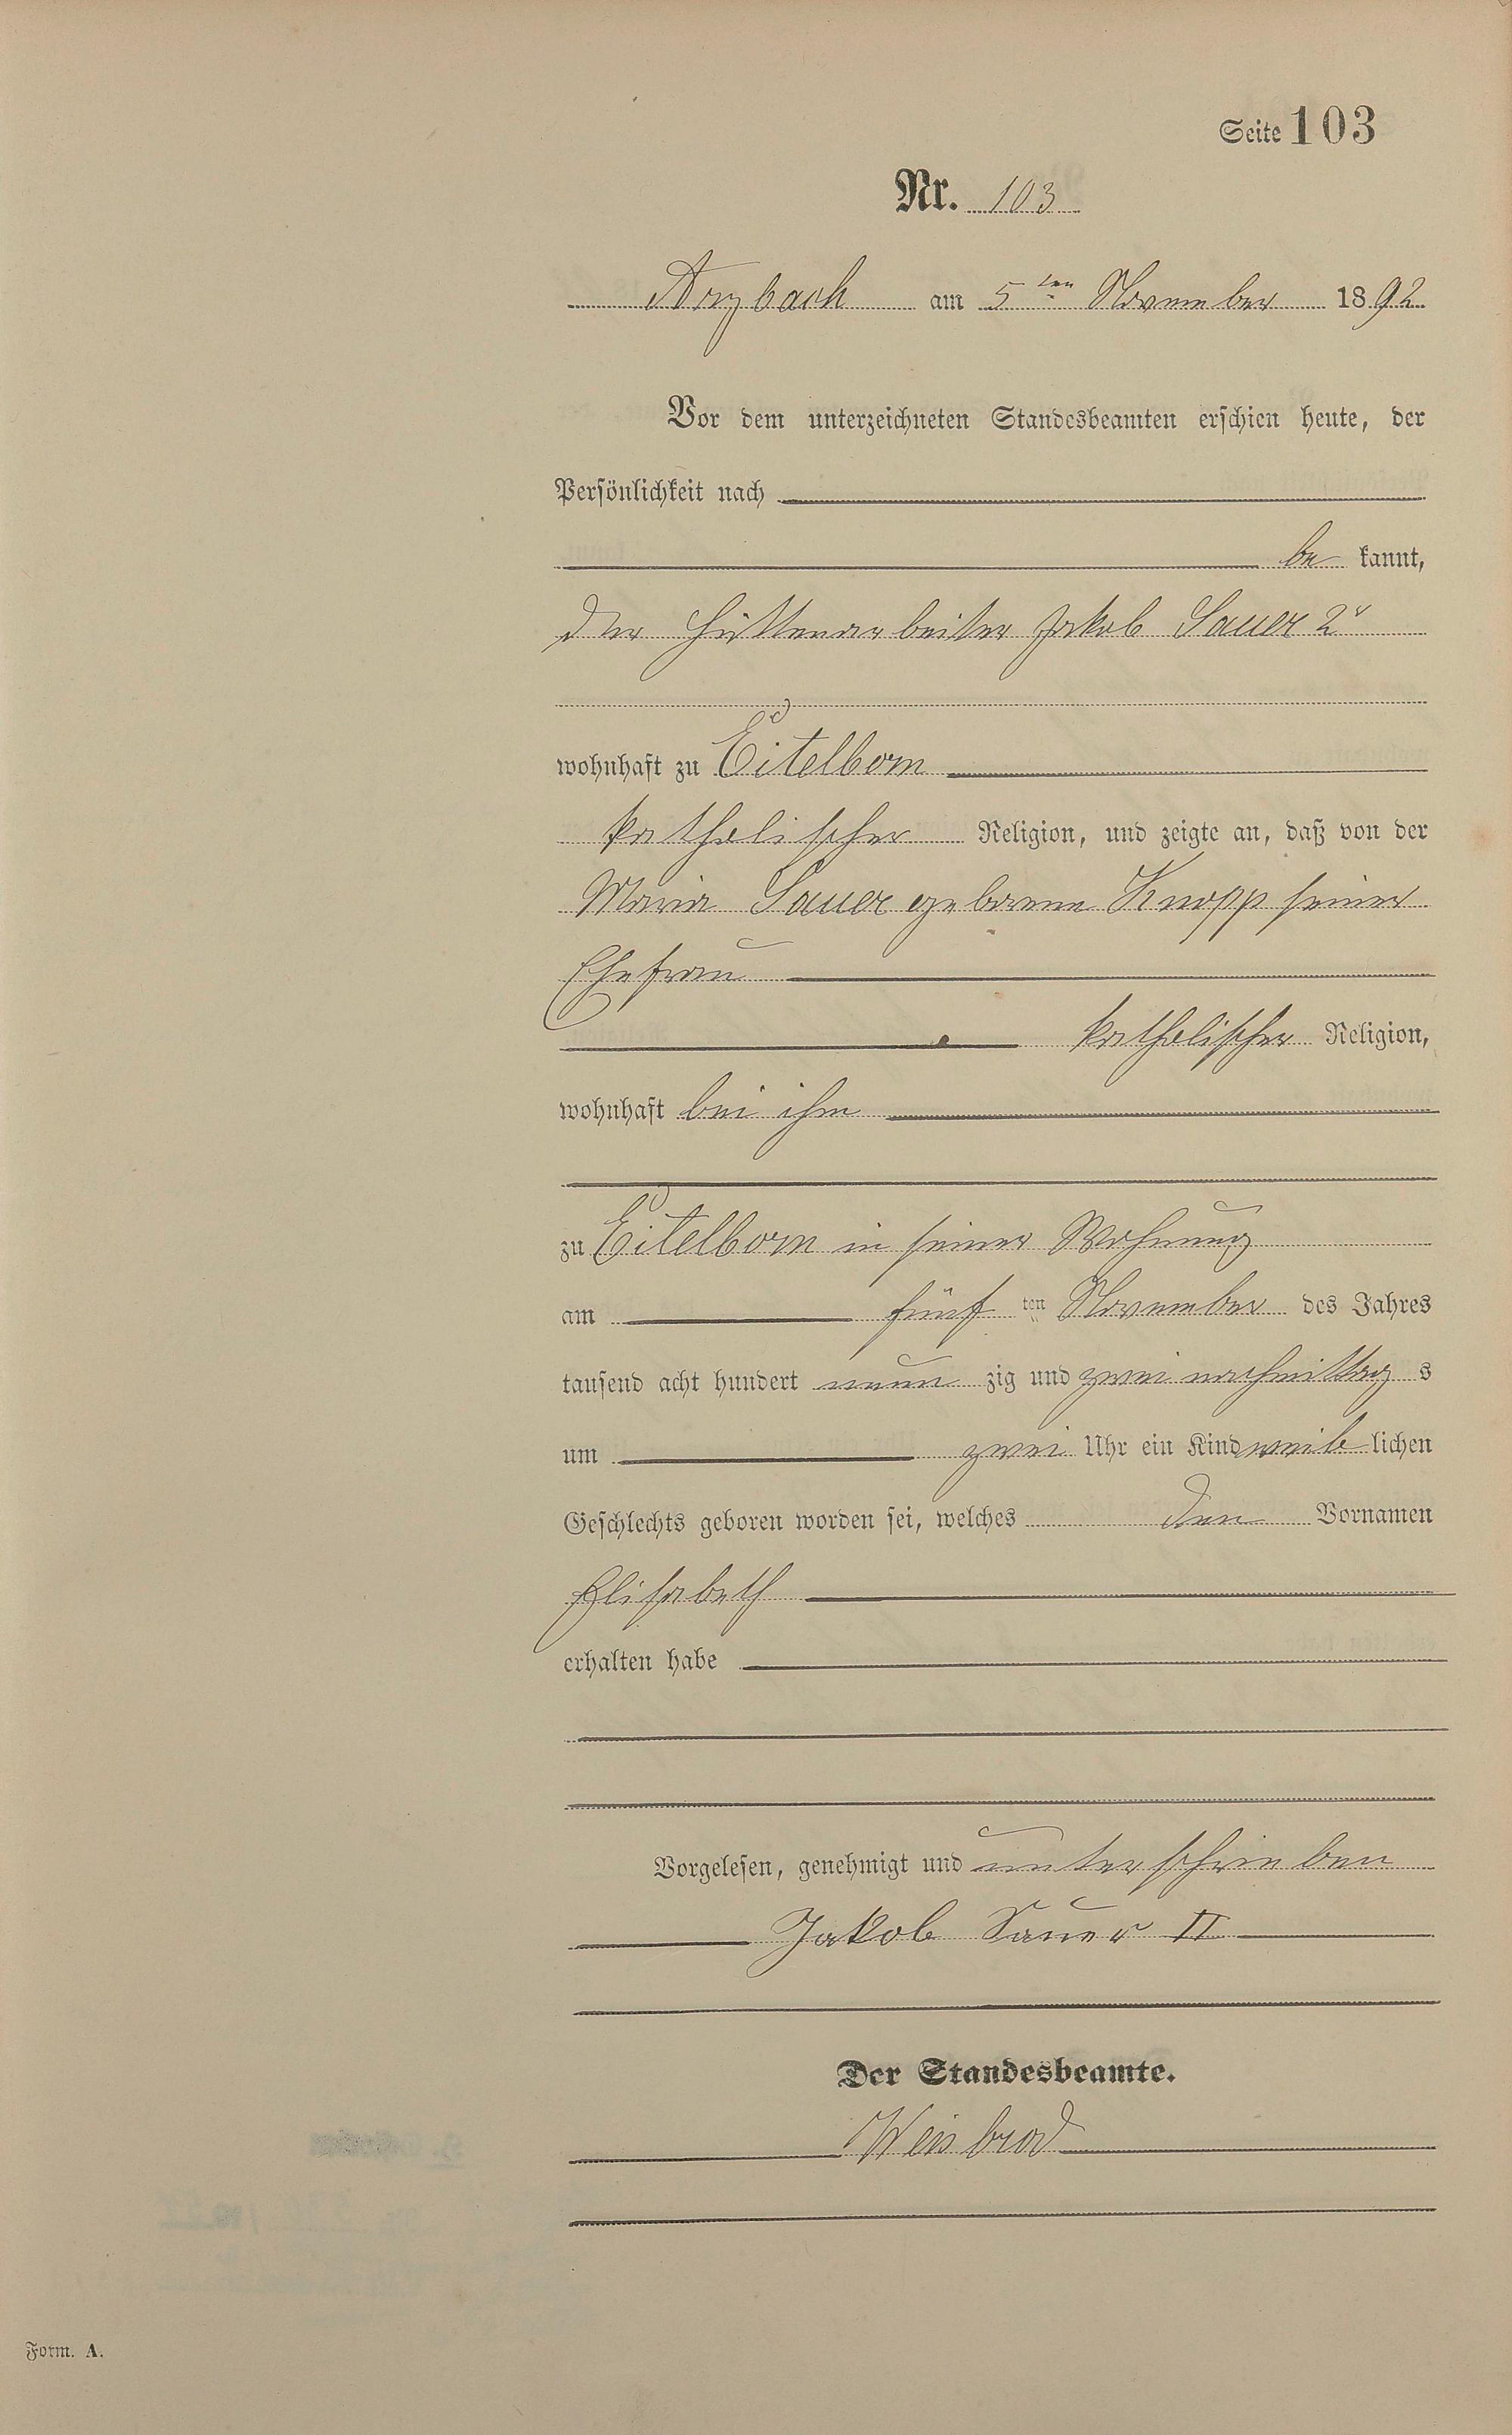 Seite 103
Nr. 103
Arzbach am 5ten November 1892
Vor dem unterzeichneten Standesbeamten erschien heute, der
Persönlichkeit nach
be kannt,
der Hüttenarbeiter Jakob Sauer 2r
wohnhaft zu Eitelborn
katholischer Religion, und zeigte an, daß von der
Maria Sauer geborene Knopp seiner
Ehefrau
katholischer Religion,
wohnhaft bei ihm
zu Eitelborn in seiner Wohnung
am fünf ten November des Jahres
tausend acht hundert neun zig und zwei nachmittag s
um zwei Uhr ein Kind weib lichen
Geschlechts geboren worden sei, welches den Vornamen
Elisabeth
erhalten habe
Vorgelesen, genehmigt und unterschrieben
Jakob Sauer II
Der Standesbeamte.
Weisbrod
Form. A.